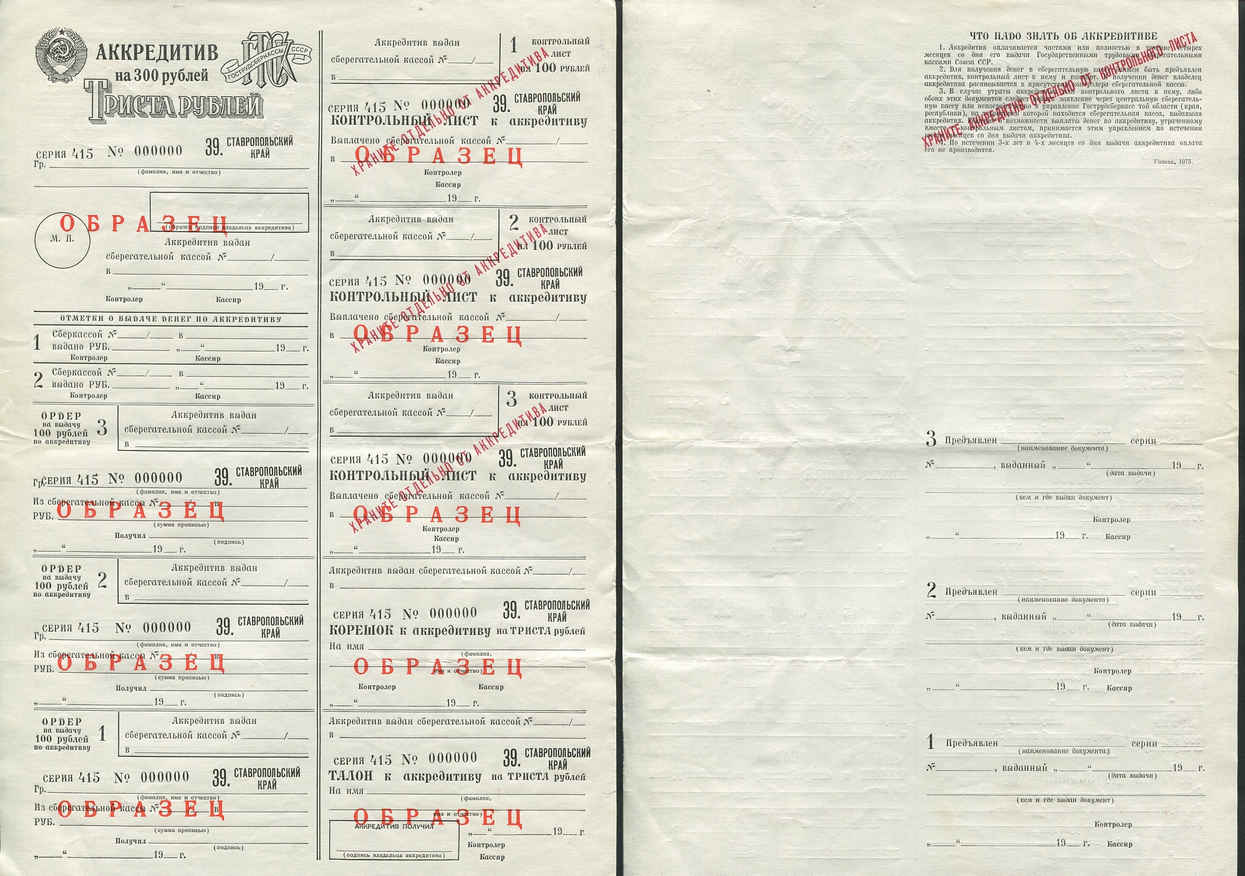 АККРЕДИТИВ
на 300 рублей
ГОСТРУДСБЕРКАССЫ СССР
ТРИСТА РУБЛЕЙ
СЕРИЯ 415 № 000000 39. СТАВРОПОЛЬСКИЙ КРАЙ
Гр.
(фамилия, имя и отчество)
ОБРАЗЕЦ
(образец подписи владельца аккредитива)
М. П.
Аккредитив выдан
сберегательной кассой № /
в
„ “ 19 г.
Контролер Кассир
ОТМЕТКИ О ВЫДАЧЕ ДЕНЕГ ПО АККРЕДИТИВУ
1 Сберкассой № / в
выдано РУБ. „ “ 19 г.
Контролер Кассир
2 Сберкассой № / в
выдано РУБ. „ “ 19 г.
Контролер Кассир
ОРДЕР
на выдачу
100 рублей
по аккредитиву
3
Аккредитив выдан
сберегательной кассой № /
в
СЕРИЯ 415 № 000000 39. СТАВРОПОЛЬСКИЙ КРАЙ
Гр.
(фамилия, имя и отчество)
Из сберегательной кассы № в
ОБРАЗЕЦ
РУБ.
(сумма прописью)
Получил
(подпись)
„ “ 19 г.
ОРДЕР
на выдачу
100 рублей
по аккредитиву
2
Аккредитив выдан
сберегательной кассой № /
в
СЕРИЯ 415 № 000000 39. СТАВРОПОЛЬСКИЙ КРАЙ
Гр.
(фамилия, имя и отчество)
Из сберегательной кассы № в
ОБРАЗЕЦ
РУБ.
(сумма прописью)
Получил
(подпись)
„ “ 19 г.
ОРДЕР
на выдачу
100 рублей
по аккредитиву
1
Аккредитив выдан
сберегательной кассой № /
в
СЕРИЯ 415 № 000000 39. СТАВРОПОЛЬСКИЙ КРАЙ
Гр.
(фамилия, имя и отчество)
Из сберегательной кассы № в
ОБРАЗЕЦ
РУБ.
(сумма прописью)
Получил
(подпись)
„ “ 19 г.
Аккредитив выдан
сберегательной кассой № /
в
1 КОНТРОЛЬНЫЙ
ЛИСТ
на 100 РУБЛЕЙ
СЕРИЯ 415 № 000000 39. СТАВРОПОЛЬСКИЙ КРАЙ
КОНТРОЛЬНЫЙ ЛИСТ к аккредитиву
ХРАНИТЕ ОТДЕЛЬНО ОТ АККРЕДИТИВА
Выплачено сберегательной кассой № /
в
ОБРАЗЕЦ
Контролер
Кассир
„ “ 19 г.
Аккредитив выдан
сберегательной кассой № /
в
2 КОНТРОЛЬНЫЙ
ЛИСТ
на 100 РУБЛЕЙ
СЕРИЯ 415 № 000000 39. СТАВРОПОЛЬСКИЙ КРАЙ
КОНТРОЛЬНЫЙ ЛИСТ к аккредитиву
ХРАНИТЕ ОТДЕЛЬНО ОТ АККРЕДИТИВА
Выплачено сберегательной кассой № /
в
ОБРАЗЕЦ
Контролер
Кассир
„ “ 19 г.
Аккредитив выдан
сберегательной кассой № /
в
3 КОНТРОЛЬНЫЙ
ЛИСТ
на 100 РУБЛЕЙ
СЕРИЯ 415 № 000000 39. СТАВРОПОЛЬСКИЙ КРАЙ
КОНТРОЛЬНЫЙ ЛИСТ к аккредитиву
ХРАНИТЕ ОТДЕЛЬНО ОТ АККРЕДИТИВА
Выплачено сберегательной кассой № /
в
ОБРАЗЕЦ
Контролер
Кассир
„ “ 19 г.
Аккредитив выдан сберегательной кассой № /
в
СЕРИЯ 415 № 000000 39. СТАВРОПОЛЬСКИЙ КРАЙ
КОРЕШОК к аккредитиву на ТРИСТА рублей
На имя
(фамилия,
имя и отчество)
ОБРАЗЕЦ
Контролер Кассир
„ “ 19 г.
Аккредитив выдан сберегательной кассой № /
в
СЕРИЯ 415 № 000000 39. СТАВРОПОЛЬСКИЙ КРАЙ
ТАЛОН к аккредитиву на ТРИСТА рублей
На имя
(фамилия,
имя и отчество)
ОБРАЗЕЦ
АККРЕДИТИВ ПОЛУЧИЛ
(подпись владельца аккредитива)
„ “ 19 г.
Контролер
Кассир
ЧТО НАДО ЗНАТЬ ОБ АККРЕДИТИВЕ
1. Аккредитив оплачивается частями или полностью в четырех
месяцев со дня его выдачи Государственными трудовыми сберегательными
кассами Союза ССР.
2. Для получения денег в сберегательную кассу должен быть предъявлен
аккредитив, контрольный лист к нему и получении денег владелец
аккредитива расписывается в присутствии контролера сберегательной кассы.
3. В случае утраты аккредитива контрольного листа к нему, либо
обоих этих документов следует заявление через центральную сберегатель-
ную кассу или управление Гострудсберкасс той области (края,
республики), на которой находится сберегательная касса, выдавшая
аккредитив. возможности выплаты денег по аккредитиву, утраченному
вместе с контрольным листом, принимается этим управлением по истечении
месяцев со дня выдачи аккредитива.
По истечении 3-х лет и 4-х месяцев со дня выдачи аккредитива оплата
его не производится.
ХРАНИТЕ АККРЕДИТИВ ОТДЕЛЬНО ОТ КОНТРОЛЬНОГО ЛИСТА
Гознак, 1975.
3 Предъявлен серии
(наименование документа)
№ , выданный „ “ 19 г.
(дата выдачи)
(кем и где выдан документ)
Контролер
„ “ 19 г. Кассир
2 Предъявлен серии
(наименование документа)
№ , выданный „ “ 19 г.
(дата выдачи)
(кем и где выдан документ)
Контролер
„ “ 19 г. Кассир
1 Предъявлен серии
(наименование документа)
№ , выданный „ “ 19 г.
(дата выдачи)
(кем и где выдан документ)
Контролер
„ “ 19 г. Кассир